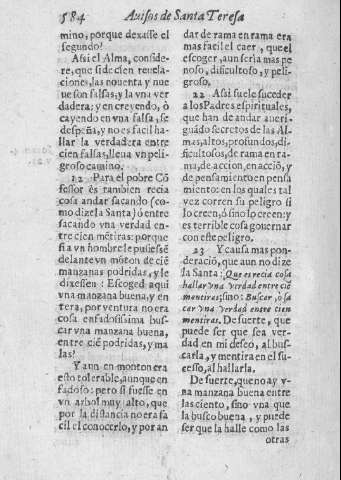 584 Auisos de Santa Teresa
mino, porque dexasse el
segundo?
Assi el Alma, conside-
re, que si de cien reuela-
ciones, las nouenta y nue
ue son falsas, y la vna ver
dadera; y en creyendo, ò
cayendo en vna falsa, se
despeña, y no es facil ha-
llar la verdadera entre
cien falsas, lleua vn peli-
groso camino.
Para el pobre Cō
fessor es tambien recia
cosa andar sacando (co-
mo dize la Santa) ò entre
sacando vna verdad
entre cien mētiras: porque
si a vn hombre le pusiessē
delante vn mōton de ciē
mançanas podridas, y le
dixessen: Escoged aqui
vna manzana buena, y en
tera, por ventura no era
cosa enfadosissima bus-
car vna manzana buena,
entre ciē podridas, y ma
las?
Y aun en monton era
esto tolerable, aunque en
fadoso: pero si fuesse en
vn arbol muy alto, que
por la distancia no era fa
cil el conocerlo, y por an
dar de rama en rama era
mas facil el caer, que el
escoger, aun seria mas pe
noso, dificultoso, y peli-
groso.
22 Assi suele suceder
a los Padres espirituales,
que han de andar aueri-
guādo secretos de las Al-
mas, altos, profundos, di-
ficultosos, de rama en ra-
ma, de accion, en acciō, y
de pensamiento en pensa
miento: en los quales tal
vez corren su peligro si
lo creen, ò sino lo creen: y
es terrible cosa gouernar
con este peligro.
23 Y causa mas pon-
deraciō, que aun no dize
la Santa: Que es recia cosa
hallar vna verdad entre ciē
mentiras; sino: Buscar, ò sa
car vna verdad entre cien
mentiras. De suerte, que
puede ser que sea ver-
dad en mi deseo, al bus-
carla, y mentira en el su-
cesso, al hallarla.
De suerte, que no ay v-
na manzana buena entre
las ciento, sino vna que
la busco buena, y puede
ser que la halle como las
otras